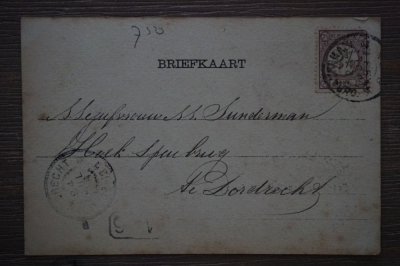 710
BRIEFKAART
Mejufvrouw M. Sunderman
Hoek Spuibrug
Te Dordrecht